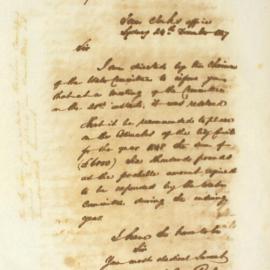 Town Clerks office
Sydney 24th December 1847
Sir
I am directed by the Chairman
of the Water Committee to inform you
that at a meeting of the Committee
on the 23rd instant, it was resolved
That it be recommended to place
on the Estimates of the City funds
for the year 1848 the sum of
(£6000) Six thousand pounds
as the probable amount required
to be expended by the Water
Committee during the ensuing
year.
I have the honor to be
Sir
Your most obedient Servant